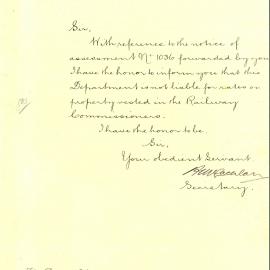 Sir,
With reference to the notice of
assessment No 1036 forwarded by you
I have the honor to inform you that this
Department is not liable for rates on
property vested in the Railway
Commissioners.
I have the honor to be
Sir,
Your obedient Servant
Secretary.